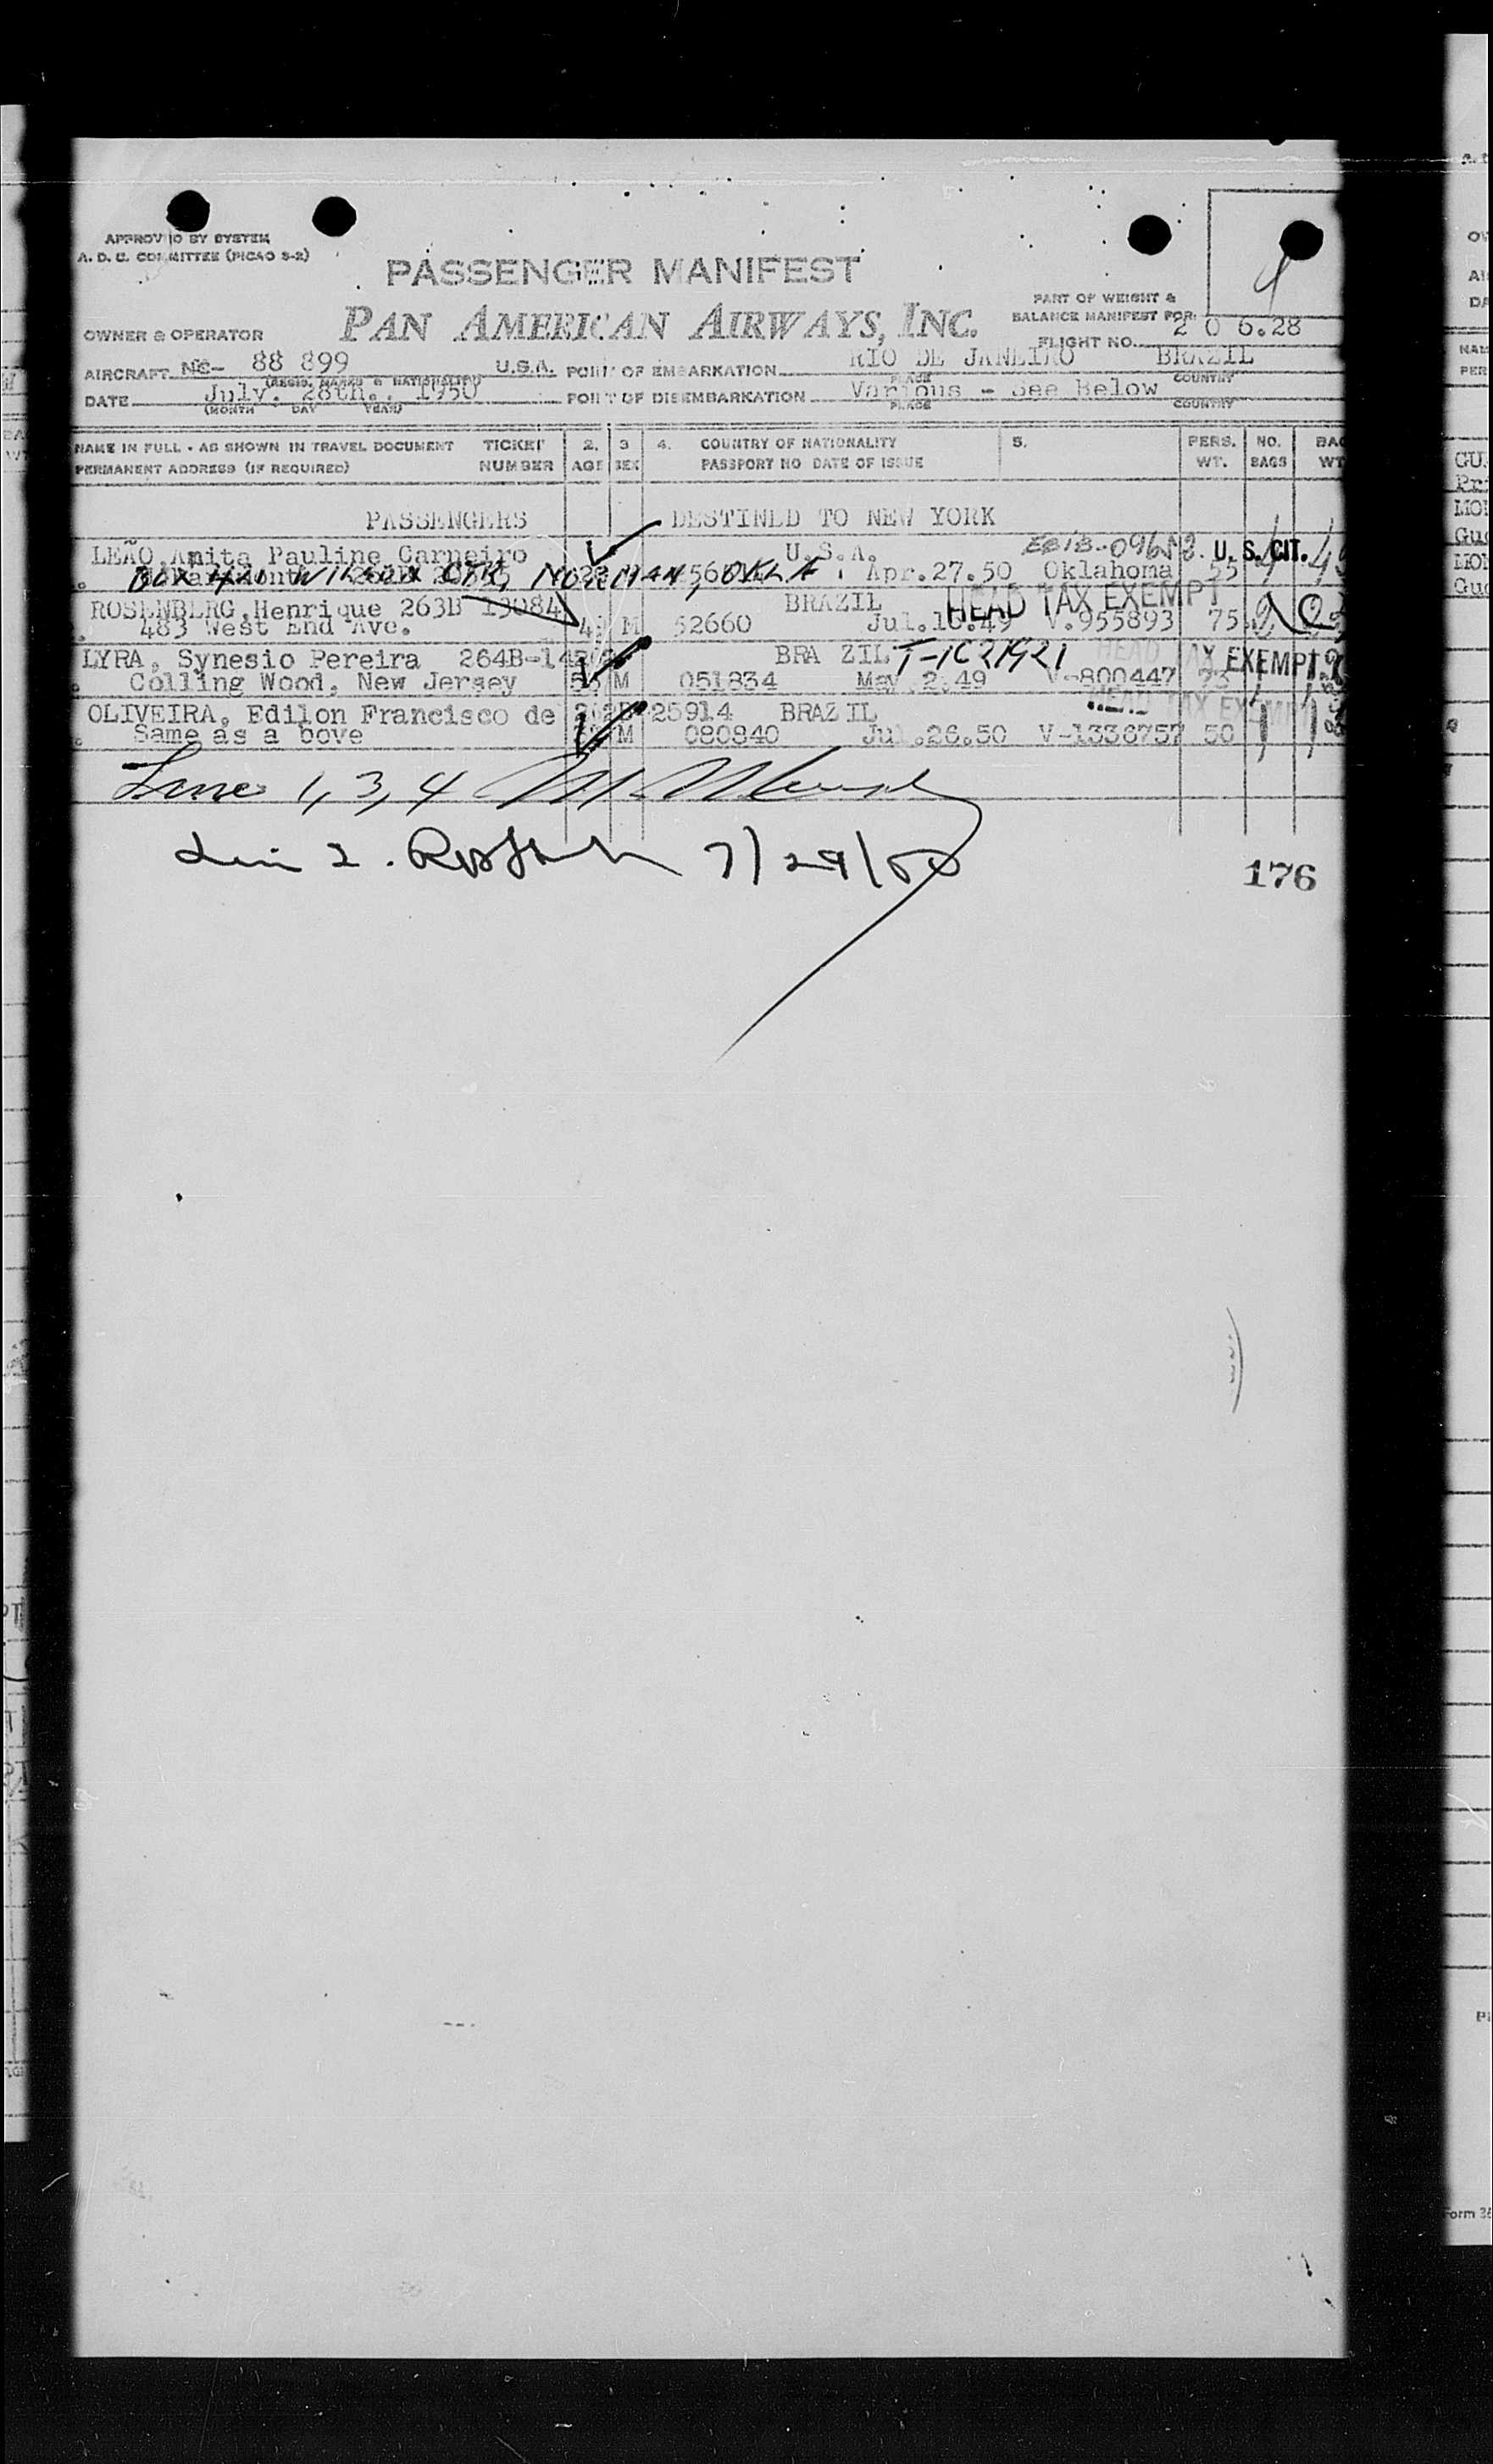 APPROVED BY SYSTEM
A. D. C. COMMITTEE (PICAO 3-2)
PASSENGER MANIFEST
PAN AMERICAN AIRWAYS, INC.
PART OF WEIGHT &
BALANCE MANIFEST FOR
FLIGHT NO. 2 0 6.28
4
OWNER & OPERATOR
AIRCRAFT NC- 88 899 U.S.A. POINT OF EMBARKATION RIO DE JANEIRO BRAZIL
(REGIS. MARKS & NATIONALITY) PLACE COUNTRY
DATE July. 28th., 1950 POINT OF DISEMBARKATION Various - See Below
(MONTH DAY YEAR) PLACE COUNTRY
NAME IN FULL - AS SHOWN IN TRAVEL DOCUMENT TICKET 2. 3 4. COUNTRY OF NATIONALITY 5. PERS. NO. BAG
PERMANENT ADDRESS (IF REQUIRED) NUMBER AGE SEX PASSPORT NO DATE OF ISSUE WT. BAGS WT
PASSENGERS DESTINED TO NEW YORK
LEÃO, Anita Pauline Carneiro U.S.A. U. S. CIT.
BOX 420 WILSON CTR, NORMAN, OKLA Apr.27.50 Oklahoma 55
ROSENBERG, Henrique 263B 13084 BRAZIL HEAD TAX EXEMPT
483 West End Ave. M 52660 Jul.16.49 V.955893 75 2
LYRA, Synesio Pereira 264B- BRA ZIL T-1C21921 HEAD TAX EXEMPT
Colling Wood, New Jersey M 051834 May.2.49 V-800447 73 1
OLIVEIRA, Edilon Francisco de 25914 BRAZIL HEAD TAX EXEMPT
Same as a bove M 080840 Jul.26.50 V-1336757 50 1
Line 1, 3, 4
2. 7/29/50
176